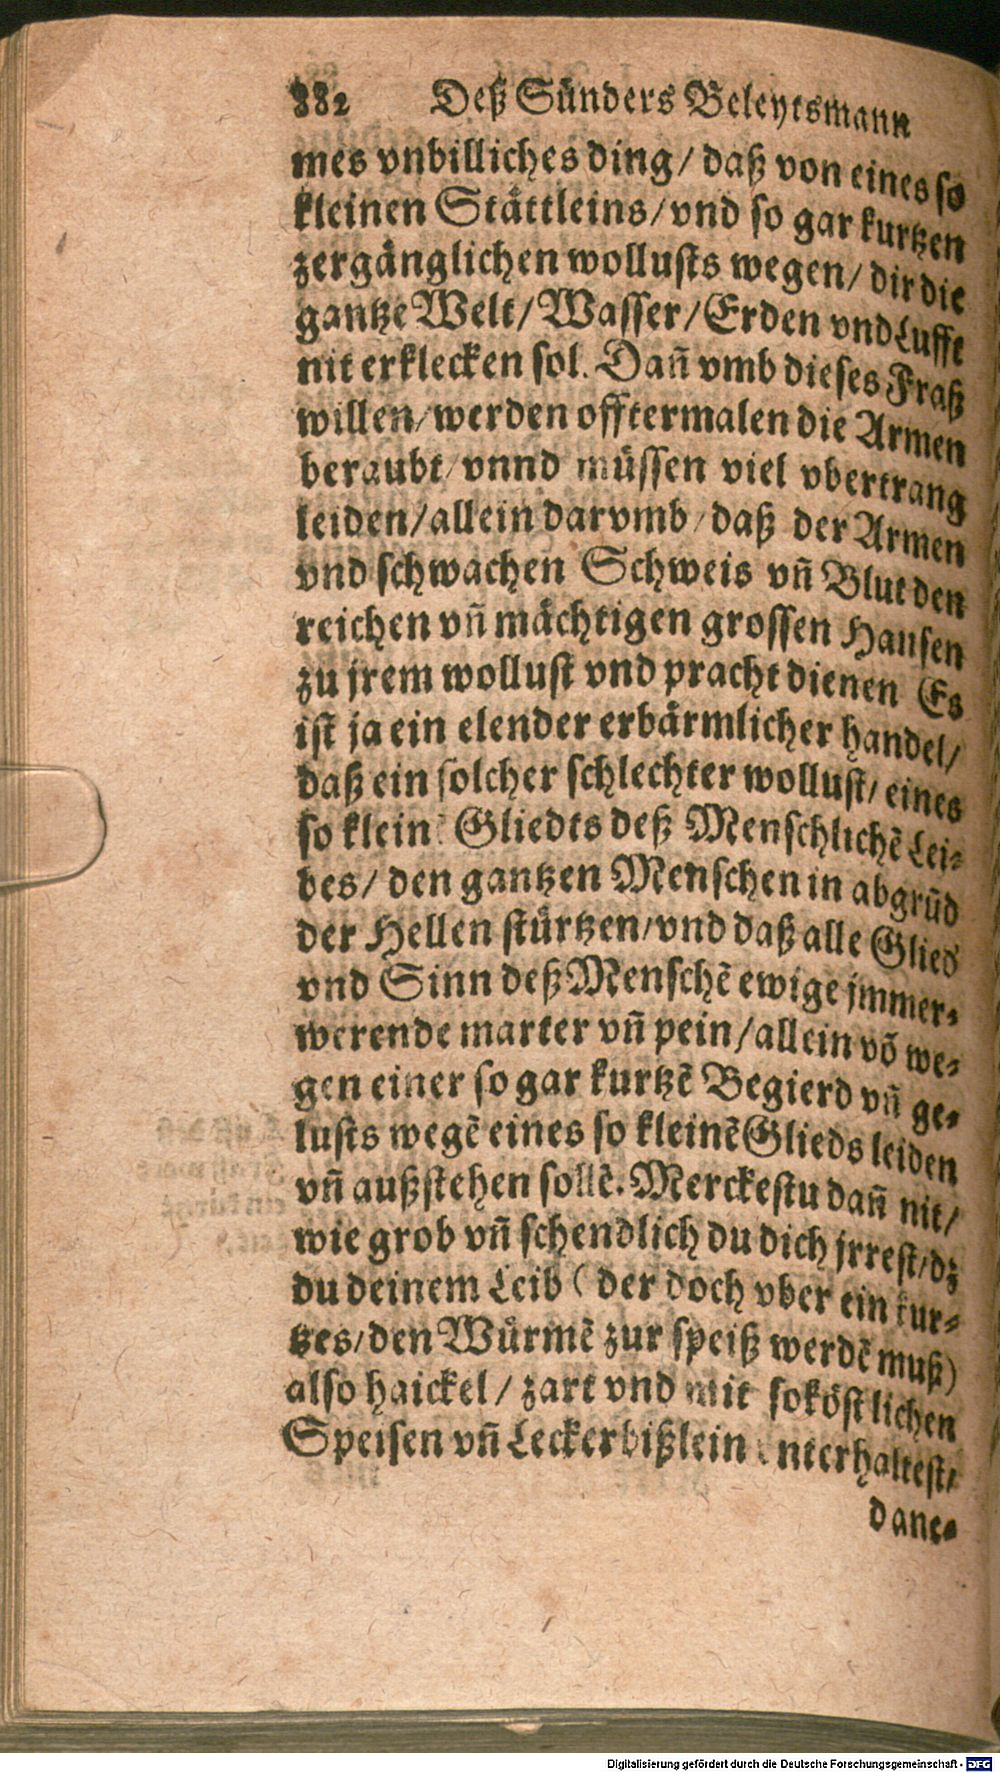 882 Deß Sünders Beleytsmann
mes vnbilliches ding/ daß von eines so
kleinen Stättleins/ vnd so gar kurtzen
zergänglichen wollusts wegen/ dir die
gantze Welt/ Wasser/ Erden vnd Lufft
nit erklecken sol. Dañ vmb dieses Fraß
willen/ werden offtermalen die Armen
beraubt/ vnnd müssen viel vbertrang
leiden/ allein darvmb/ daß der Armen
vnd schwachen Schweis vñ Blut den
reichen vñ mächtigen grossen Hansen
zu jrem wollust vnd pracht dienen Es
ist ja ein elender erbärmlicher handel/
daß ein solcher schlechter wollust/ eines
so klein Gliedts deß Menschlichẽ Lei-
bes/ den gantzen Menschen in abgrũd
der Hellen stürtzen/ vnd daß alle Glied
vnd Sinn deß Menschẽ ewige jmmer-
werende marter vñ pein/ allein võ we-
gen einer so gar kurtzẽ Begierd vñ ge-
lusts wegẽ eines so kleinẽ Glieds leiden
vñ außstehen sollẽ. Merckestu dañ nit/
wie grob vñ schendlich du dich jrrest/ dz
du deinem Leib ( der doch vber ein kur-
tzes/ den Würmẽ zur speiß werdẽ muß)
also haickel/ zart vnd mit so köstlichen
Speisen vñ Leckerbißlein vnterhaltest/
dane-
Digitalisierung gefördert durch die Deutsche Forschungsgemeinschaft - DFG